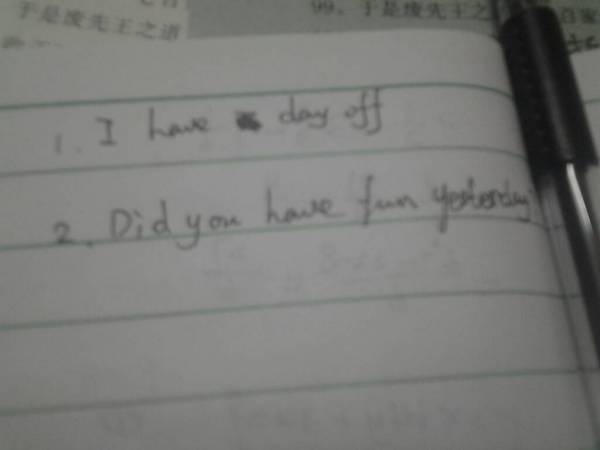 于是废先王之道
99、于是废先王之
百家
1. I have day off
2. Did you have fun yesterday?